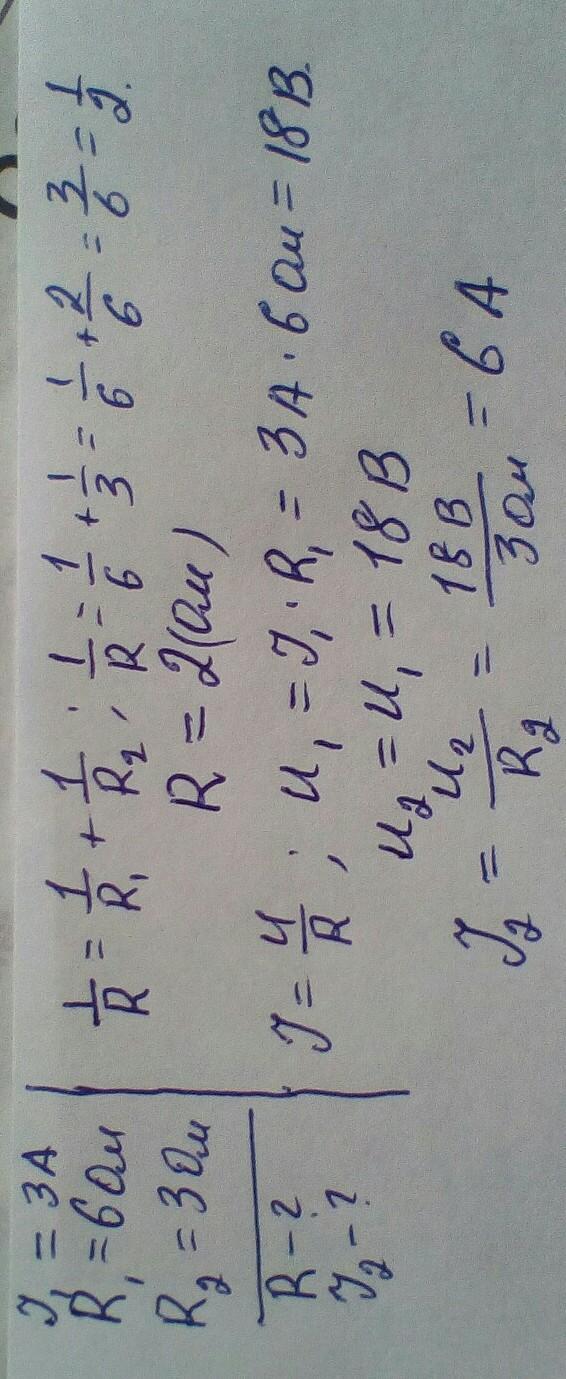 I₁ = 3A
R₁ = 6 Ом
R₂ = 3 Ом
R - ?
I₂ - ?
1/R = 1/R₁ + 1/R₂; 1/R = 1/6 + 1/3 = 1/6 + 2/6 = 3/6 = 1/2.
R = 2 (Ом)
I = U/R; U₁ = I₁ · R₁ = 3 A · 6 Ом = 18 В.
U₂ = U₁ = 18 В
I₂ = U₂/R₂ = 18 В/3 Ом = 6 A